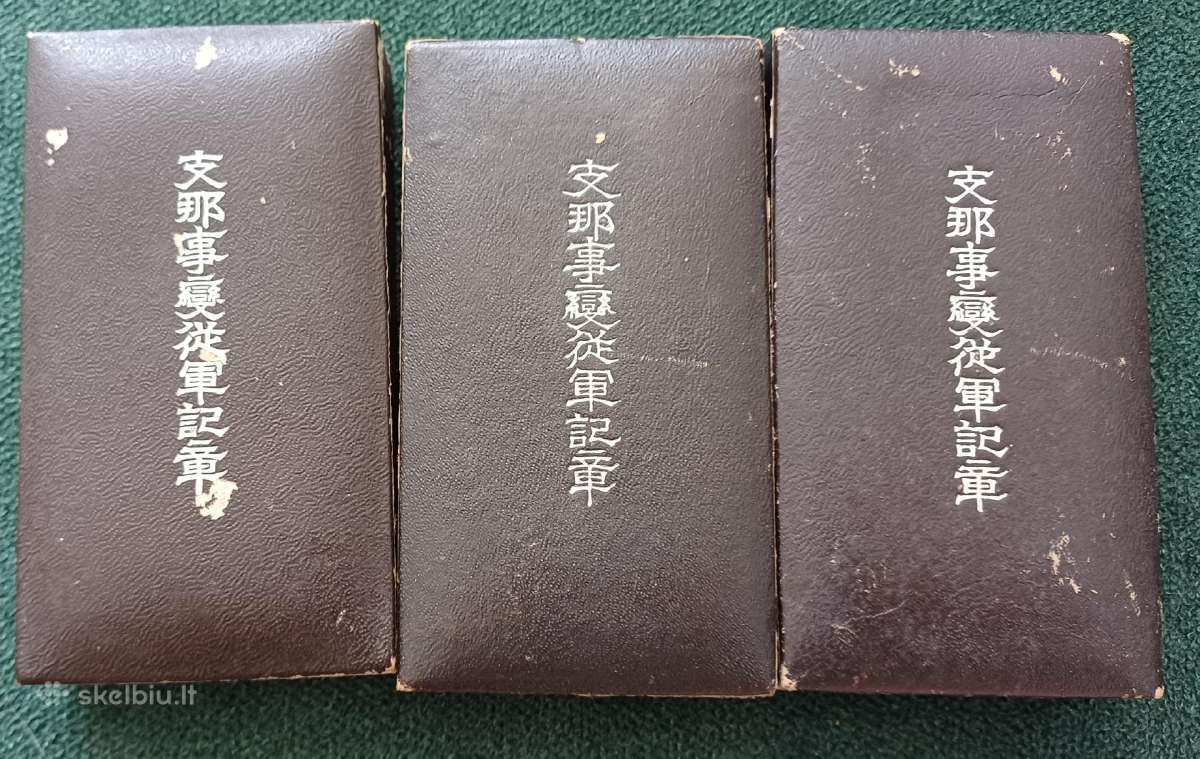 支那事變従軍記章
支那事變従軍記章
支那事變従軍記章
skelbiu.lt